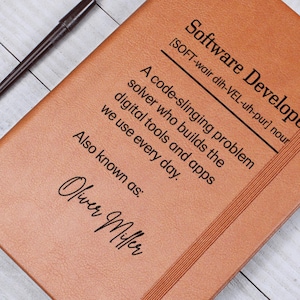 Software Develope
[SOFT-wair dih-VEL-uh-pur] nour
A code-slinging problem
solver who builds the
digital tools and apps
we use every day.
Also known as:
Oliver Miller